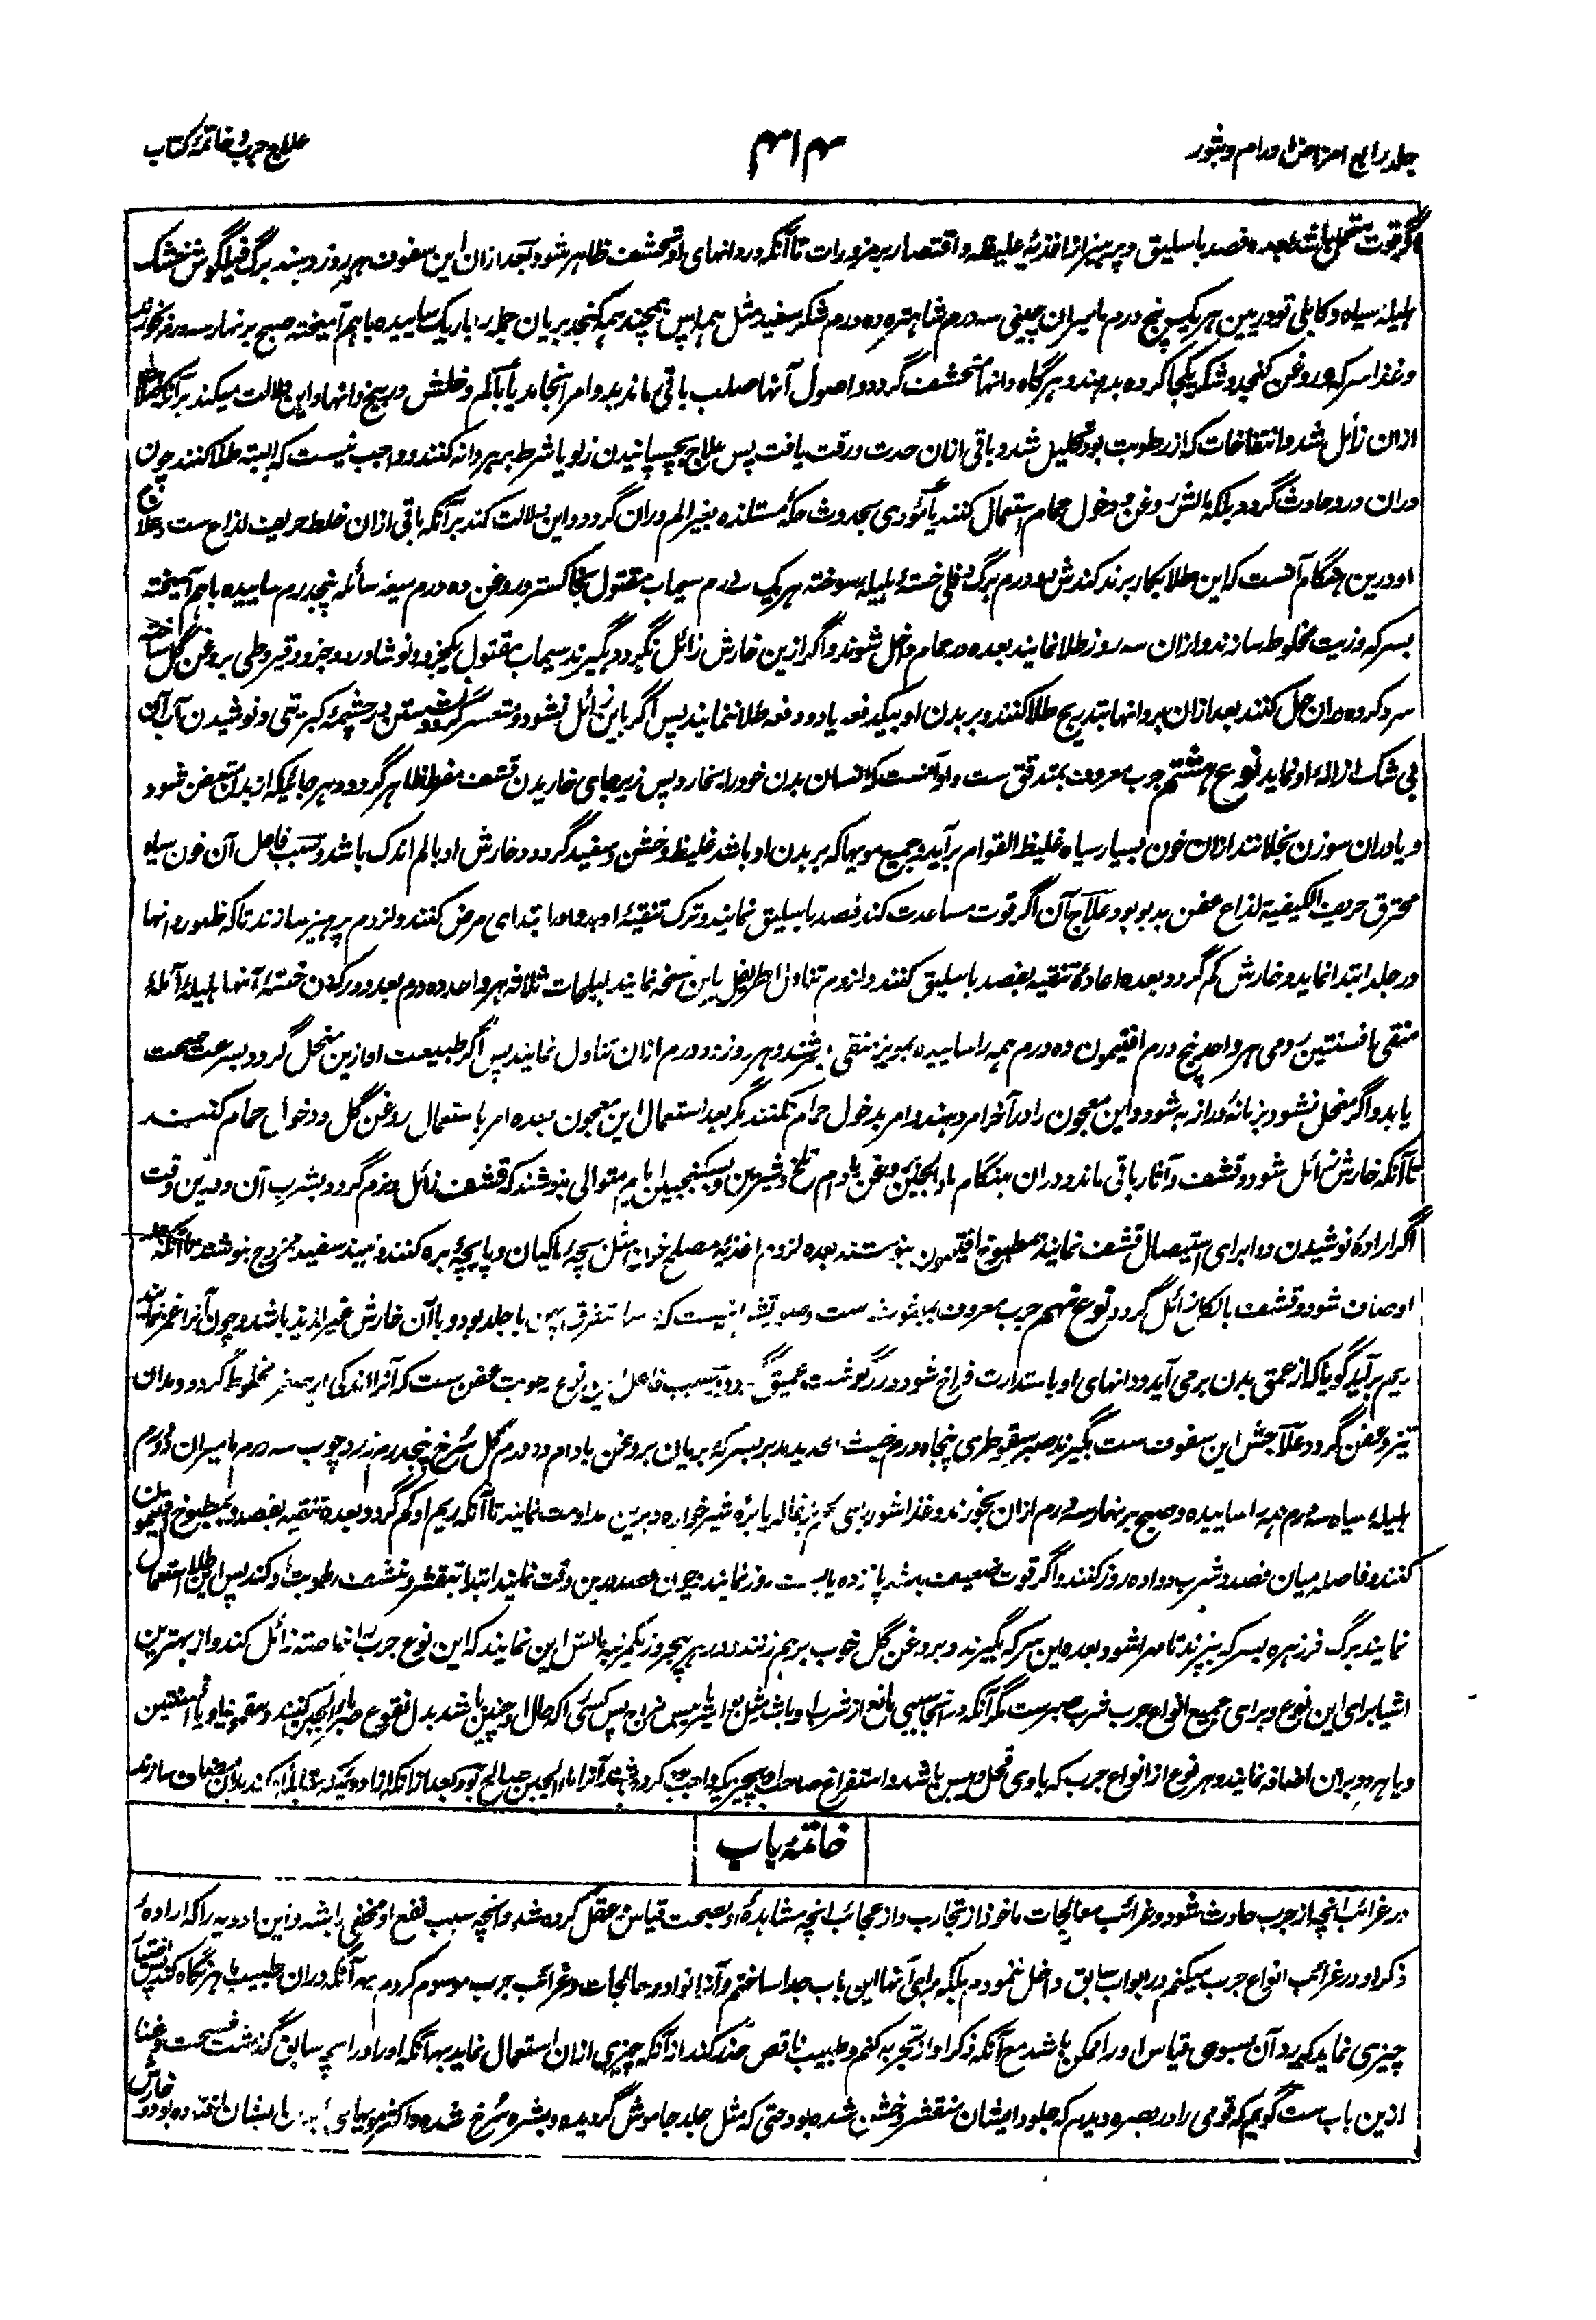 جلد رابع امراض اورام و بثور
۴۱۴
علاج جرب و خاتمهٔ کتاب
اگر قوت متحمل باشد بعده فصد باسلیق و پرهیز از اغذیهٔ غلیظه و اقتصار بر مزورات تا آنکه در دانهای او تحشف ظاهر شود بعد ازان این سفوف هر روز دهند برگ فیلگوش خشک
هلیلهٔ سیاه و کابلی تودریین هر یک پنج درم مامیران چینی سه درم شاهتره ده درم شکر سفید مثل همه پس همچند همه کنجد بریان جمله را باریک ساییده باهم آمیخته صبح بر نهار سه درم بخورند
و غذا سرکه و روغن کنجد و شکر یکجا کرده بدهند و هرگاه دانها متحشف گردد و اصول آنها صلب باقی ماند بدو امر انجامد یا بألم و خلش در بیخ دانها و این دلالت میکند برآنکه
ازان زائل شد و انتفاخات که از رطوبت بود تحلیل شد و باقی ازان حدت و رقت یافت پس علاج بچسپانیدن زلو یا شرط بر هر دانه کنند و واجب نیست که البته طلا کنند چون
دران درد حادث گردد بلکه مالش روغن و دخول حمام استعمال کنند یا مؤدی بحدوث حکهٔ مستلذه بغیر الم دران گردد و این دلالت کند برآنکه باقی ازان خلط حریف لذاع ست و علاج
او درین هنگام آنست که این طلا بکار برند کندش دو درم برگ دفلی خستهٔ هلیله سوخته هر یک درم سیماب مقتول بخاکستر و روغن ده درم میعهٔ سائله پنجدرم ساییده باهم آمیخته
بسرکه و زیت مخلوط سازند و ازان سه روز طلا نمایند بعده در حمام داخل شوند و اگر ازین خارش زائل نگردد بگیرند سیماب مقتول یکجزو و نوشادر دو جزو و قیروطی بروغن گل ساخته
سرد کرده دران حل کنند بعد ازان بر دانها بتدریج طلا کنند و بر بدن او بیکدفعه یا دو دفعه طلا ننمایند پس اگر باین زائل نشود و متعسر گردد نشستن در چشمهٔ کبریتی و نوشیدن آب آن
بی شک ازالهٔ او نماید نوع هشتم جرب معروف بمتدقق ست و او آنست که انسان بدن خود را بخارد پس زیر جای خاریدن قشف مفرط ظاهر گردد و هر جائیکه از بدن متعفن شود
و یا دران سوزن بخلانند ازان خون بسیار سیاه غلیظ القوام برآید و جمیع مویها که بر بدن او باشد غلیظ و خشن و سفید گردد و خارش او بالم اندک باشد و سبب فاعل آن خون سیاه
محترق حریف الکیفیة لذاع عفن بدبو بود علاج آن اگر قوت مساعدت کند فصد باسلیق نمایند و ترک تنقیهٔ او بدوا در ابتدای مرض کنند و لزوم پرهیز سازند تا که ظهور دانها
در جلد ابتدا نماید و خارش کم گردد بعده اعادهٔ تنقیه بفصد باسلیق کنند و لزوم تناول اطریفل باین نسخه نمایند هلیلجات ثلاثه هر واحد ده درم بعد دور کردن خستهٔ آنها هلیله آملهٔ
منقی افسنتین رومی هر واحد پنج درم افتیمون ده درم همه را ساییده بمویز منقی بسرشند و هر روز دو درم ازان تناول نمایند پس اگر طبیعت او ازین منحل گردد بسرعت صحت
یابد و اگر منحل نشود بزمانهٔ دراز به شود و این معجون را در آخر امر دهند و امر بدخول حمام نکنند مگر بعد استعمال این معجون بعده امر باستعمال روغن گل و دخول حمام کنند
تا آنکه خارش زائل شود و قشف و آثار باقی ماند و دران هنگام ماء الجبن بروغن بادام تلخ و شیرین و بسکنجبین ایام متوالی بنوشند که قشف زائل و نرم گردد بشرب آن و درین وقت
اگر ارادهٔ نوشیدن دوا برای استیصال قشف نمایند مطبوخ افتیمون بنوشند بعده لزوم اغذیهٔ مصلح خون مثل بچهٔ ماکیان و پاچهٔ بره کنند و نبیذ سفید ممزوج بنوشند تا آنکه
او صاف شود و قشف بالکل زائل گردد نوع نهم جرب معروف ست و صورتش اینست که متفرق در بدن با جلد بود و با آن خارش غیر لذیذ باشد و چون آنرا غمز نمایند
ریم برآید گویا که از عمق بدن برمی آید و دانهای او باستدارت فراخ شود و در گوشت عمیق گردد و سبب فاعل این نوع رطوبت عفن ست که آنرا اندکی از صفرا مخلوط گردد و بدان
تیز و عفن گردد و علاجش این سفوف ست بگیرند صبر سقوطری پنجاه درم خبث الحدید مدبر بسرکه بریان بروغن بادام ده درم گل سرخ پنجدرم زرد چوب سه درم مامیران دو درم
هلیله سیاه سه درم همه را ساییده صبح بر نهار سه درم ازان بخورند و غذا شوربای لحم بزغاله یا بره شیرخواره و برین مداومت نمایند تا آنکه ریم او کم گردد بعده تنقیه بفصد و بمطبوخ افتیمون
کنند و فاصله میان فصد و شرب دوا ده روز کنند و اگر قوت ضعیف باشد پانزده یا بیست روز نمایند و چون فصد درین وقت نمایند ابتدا بتقشر و نشف رطوبت او کند پس این طلا استعمال
نمایند برگ خرزهره بسرکه بپزند تا مهرا شود بعده این سرکه بگیرند و بروغن گل خوب برهم زنند و در هر پنج روز یکمرتبه مالش این نمایند که این نوع جرب را خاصتهٔ زائل کند و از بهترین
اشیا برای این نوع و برای جمیع انواع جرب شرب صبرست مگر آنکه در آنجا سببی مانع از شرب او باشد مثل حرارت یا یبس مزاج پس کسی را که حال او چنین باشد بدل نقوع صبر ماء الجبن کنند و سقمونیا و یا افسنتین
و یا هر دو بران اضافه نمایند و هر نوع از انواع جرب که باوی قحل و یبس باشد و استفراغ صاحب او بچیزیکه واجب ست کرده باشند آنرا ماء الجبن صالح بود
خاتمهٔ باب
در غرائب آنچه از جرب حادث شود و غرائب معالجات ماخوذ از تجارب و از عجائب آنچه مشاهدهٔ او بصحت قیاس عقل کرده شد و آنچه سبب نفع او مخفی باشد و این ادویه را که ارادهٔ
ذکر او در غرائب انواع جرب میکنم در ابواب سابق داخل ننمودم بلکه برای آنها این باب جدا ساختم و آنرا نوادر معالجات و غرائب جرب موسوم کردم بهر آنکه دران طبیب ماهر نگاه کند پس اختیار
چیزی نماید که رد آن بسوی قیاس او را ممکن باشد مع آنکه ذکر او از تجربه کنم و طبیب ناقص حذر کند از آنکه چیزی ازان استعمال نماید بهر آنکه او را در آنچه سابق گذشت فسحت و غنا
ازین باب ست گویم که قومی را در بصره دیدم که جلود ایشان متقشر و خشن شده بود حتی که مثل جلد جاموش گردیده و بشره سرخ شده و اکثر مویهای ایشان افتاده بود و خارش